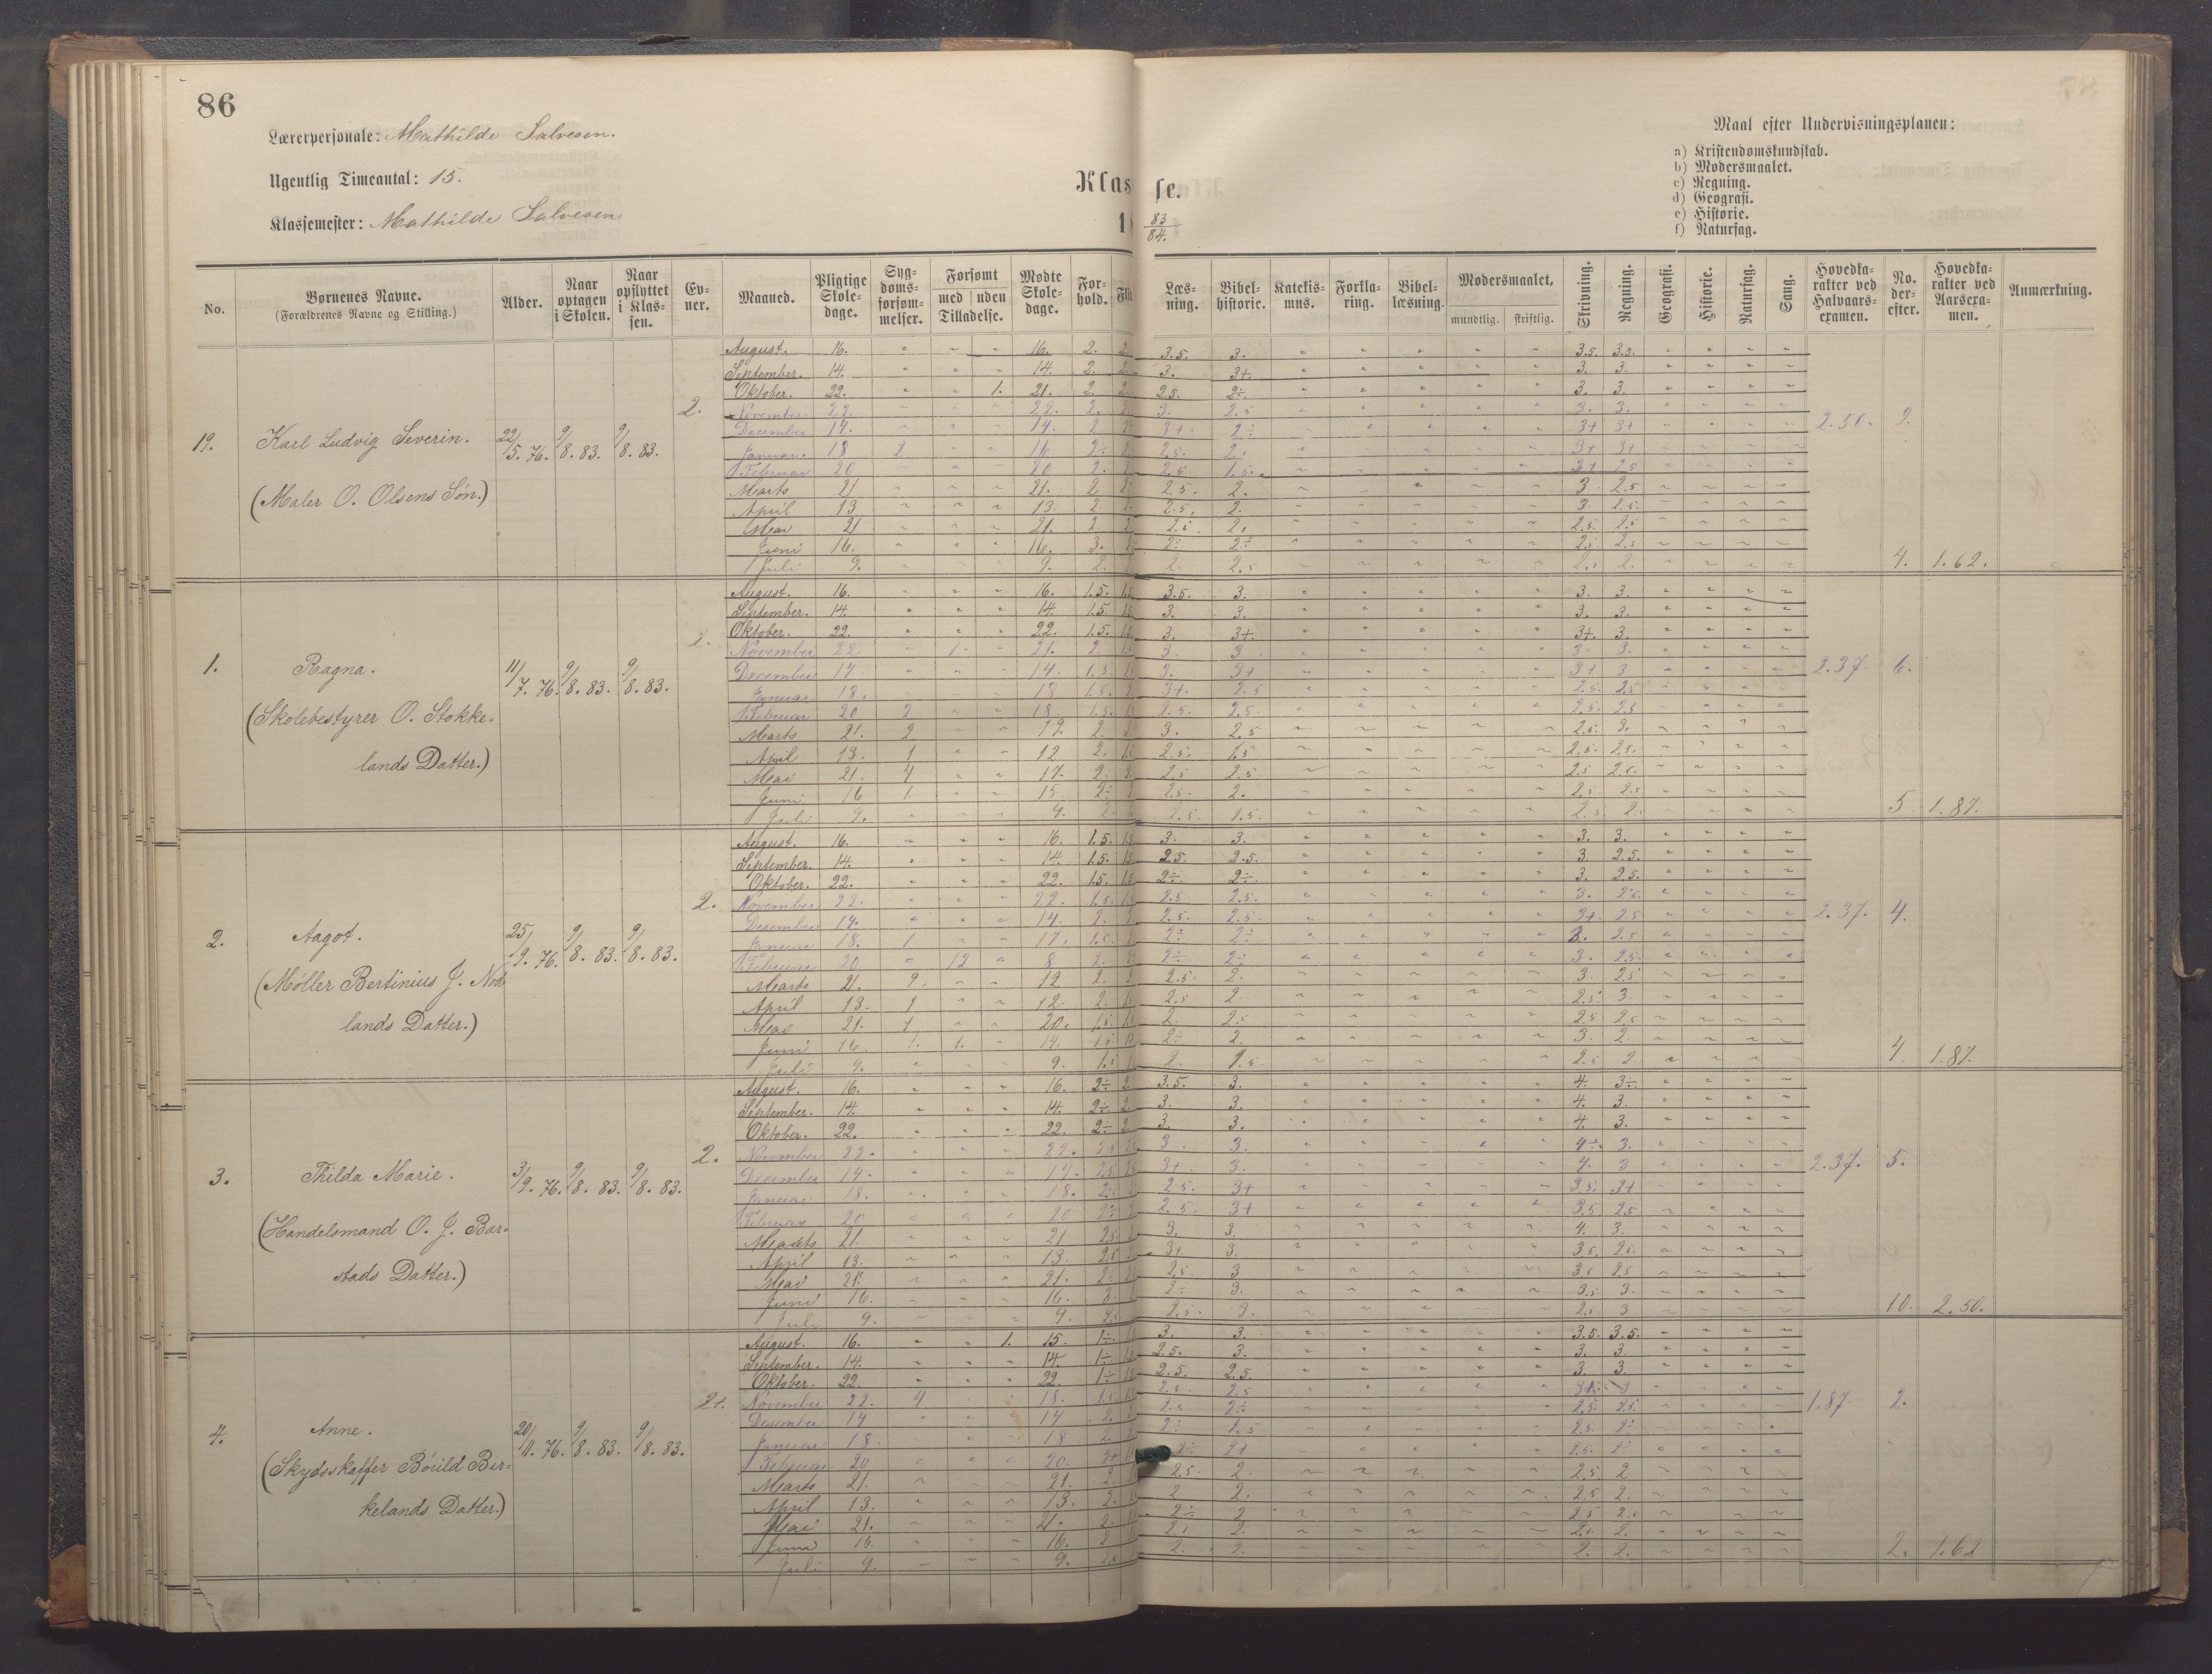 86
Lærerpersonale: Mathilde Salvesen.
Ugentlig Timeantal: 15.
Klassemester: Mathilde Salvesen
Klasse.
18 83/84.
Maal efter Undervisningsplanen:
a) Kristendomskundskab.
b) Modersmaalet.
c) Regning.
d) Geografi.
e) Historie.
f) Naturfag.
No. Børnenes Navne. (Forældrenes Navne og Stilling.) Alder. Naar optagen i Skolen. Naar opflyttet i Klassen. Evner. Maaned. Pligtige Skoledage. Sygdomsforsømmelser. Forsømt med uden Tilladelse. Mødte Skoledage. Forhold. Læsning. Bibelhistorie. Katekismus. Forklaring. Bibellæsning. Modersmaalet, mundtlig. skriftlig. Skrivning. Regning. Geografi. Historie. Naturfag. Sang. Hovedkarakter ved Halvaarsexamen. No. derefter. Hovedkarakter ved Aarsexamen. Anmærkning.
19. Karl Ludvig Severin.
(Maler O. Olsens Søn.)
22/5. 76. 9/8. 83. 9/8. 83. 2.
August. 16. 16. 2. 2 3.5. 3. 3.5. 3.5.
September. 14. 14. 2. 2. 3. 3+. 3. 3.
Oktober. 22. 1. 21. 2. 2. 2.5. 2÷. 3. 3.
November 22. 22. 2. 3. 2.5 3. 3. 2.50.
December 14. 14. 2 3+. 2÷ 3+ 3+
Januar. 18 2 16 2÷ 2.5. 2. 3+ 3+
Februar 20 20 2. 2.5. 1.5. 3+ 2.5
Marts 21 21. 2 2.5. 2. 3 2.5
April 13 13. 2 2.5. 2. 3. 2.5.
Mai 21 21. 2. 2. 2.5. 2.5
Juni 16. 16. 3. 2÷ 2÷ 2.5. 2.5
Juli 9. 9. 2. 2. 2.5 2.5 2. 4. 1.62.
1. Ragna.
(Skolebestyrer O. Stokke=
lands Datter.)
11/7. 76. 9/8. 83. 9/8. 83. 2.
August. 16. 16. 1.5. 1.5 3.5. 3. 3. 3.
September. 14. 14. 1.5. 1.5 3. 3. 3. 3.
Oktober. 22. 22. 1.5. 1.5 3. 3+. 3+. 3.
November 22 1. 21. 2. 3. 3. 3. 3.
December 14 14. 1.5 3. 3+ 3+ 3 2.37. 6.
Januar 18. 18 1.5. 3+. 2.5 2.5. 2.5
Februar 20 2 18. 1.5. 2.5. 2.5. 2.5. 2.5
Marts 21. 2 19. 2. 3. 2.5 2.5. 3.
April 13. 1 12 2. 2.5. 1.5 2.5. 2.5.
Mai 21. 4 17. 2. 2.5 2.5. 2.5 2.5.
Juni 16 1. 15. 2÷ 2.5. 2. 2.5. 2.5
Juli 9. 9. 2. 2.5. 1.5. 2.5 2. 5 1.87.
2. Aagot.
(Møller Bertinius J. Nod
lands Datter.)
25/9. 76. 9/8. 83. 9/8. 83. 2.
August. 16. 16. 1.5. 1.5 3. 3. 3. 3.
September. 14. 14. 1.5. 1.5 2.5. 2.5. 3. 2.5.
Oktober. 22. 22. 1.5. 1.5 2÷. 2÷. 3. 2.5.
November 22. 22. 1.5. 2.5 2.5. 3. 2.5.
Desember 14. 14. 2. 2.5. 2.5. 3+ 2.5 2.37. 4.
Januar 18. 1 17. 1.5. 2÷ 2÷ 3. 2.5
Februar 20 12 8 2. 2÷ 2÷ 3. 2.5.
Marts 21. 9. 12 2. 2.5. 2. 3. 2.5
April 13. 1 12. 2. 2.5 2 2.5. 3.
Mai 21. 1 20. 1.5 2. 2.5 2.5 2.5
Juni 16. 1. 1. 14. 1.5 2÷ 2. 3. 2.
Juli 9. 9. 1.5 2. 1.5 2.5 2. 4. 1.87.
3. Thilda Marie.
(Handelsmand O. J. Bar=
stads Datter.)
3/9. 76. 9/8. 83. 9/8. 83. 2.
August. 16. 16. 2÷ 2 3.5. 3. 4. 3÷.
September. 14. 14. 2÷ 2. 3. 3. 4. 3.
Oktober. 22. 22. 2÷ 2. 3. 3. 4. 3.
November 22. 22. 2.5 3 3. 4÷. 3.
December 14. 14. 2.5 3+. 3. 4. 3 2.37. 5.
Januar 18. 18. 2.5 2.5. 3+ 3.5. 3+
Februar 20 20 2÷ 2.5. 3+ 3.5 2.5
Marts 21. 21 2.5 3. 3. 4. 3.
April 13. 13. 2.5 3+. 3. 3.5. 2.5.
Mai 21. 21. 2. 2.5. 3 3.5 2.5
Juni 16. 16. 3. 2÷ 3. 3.5. 3.
Juli 9. 9. 2. 2.5. 3. 2.5 3 10. 2.50.
4. Anne.
(Skydsskaffer Børild Bir=
kelands Datter.)
20/11. 76. 9/8. 83. 9/8. 83. 2+.
August. 16. 1. 15. 1÷ 1.5 3. 3. 3.5. 3.5.
September. 14. 14. 1÷ 1.5 2.5. 3. 3. 3.
Oktober. 22. 22. 1÷ 1.5 2.5. 2.5. 3. 3.
November 22. 4 18. 1.5 2.5. 2.5 3+. 3 1.87. 2.
Desember 14 14 2. 2÷ 2.5 2.5
Januar 18. 18 2. 2÷ 1.5 2.5. 2÷
Februar 20 20. 2+ 2÷ 2+ 2.5. 2÷
Marts 21. 21. 2. 2.5. 2. 2.5. 2
April 13. 13. 2. 2 2. 2.5 2.
Mai 21. 21. 2. 2÷ 2 2.5 2.5
Juni 16. 16. 2 2. 2. 2.5. 2.
Juli 9. 9. 2. 2. 2. 2. 2. 2.